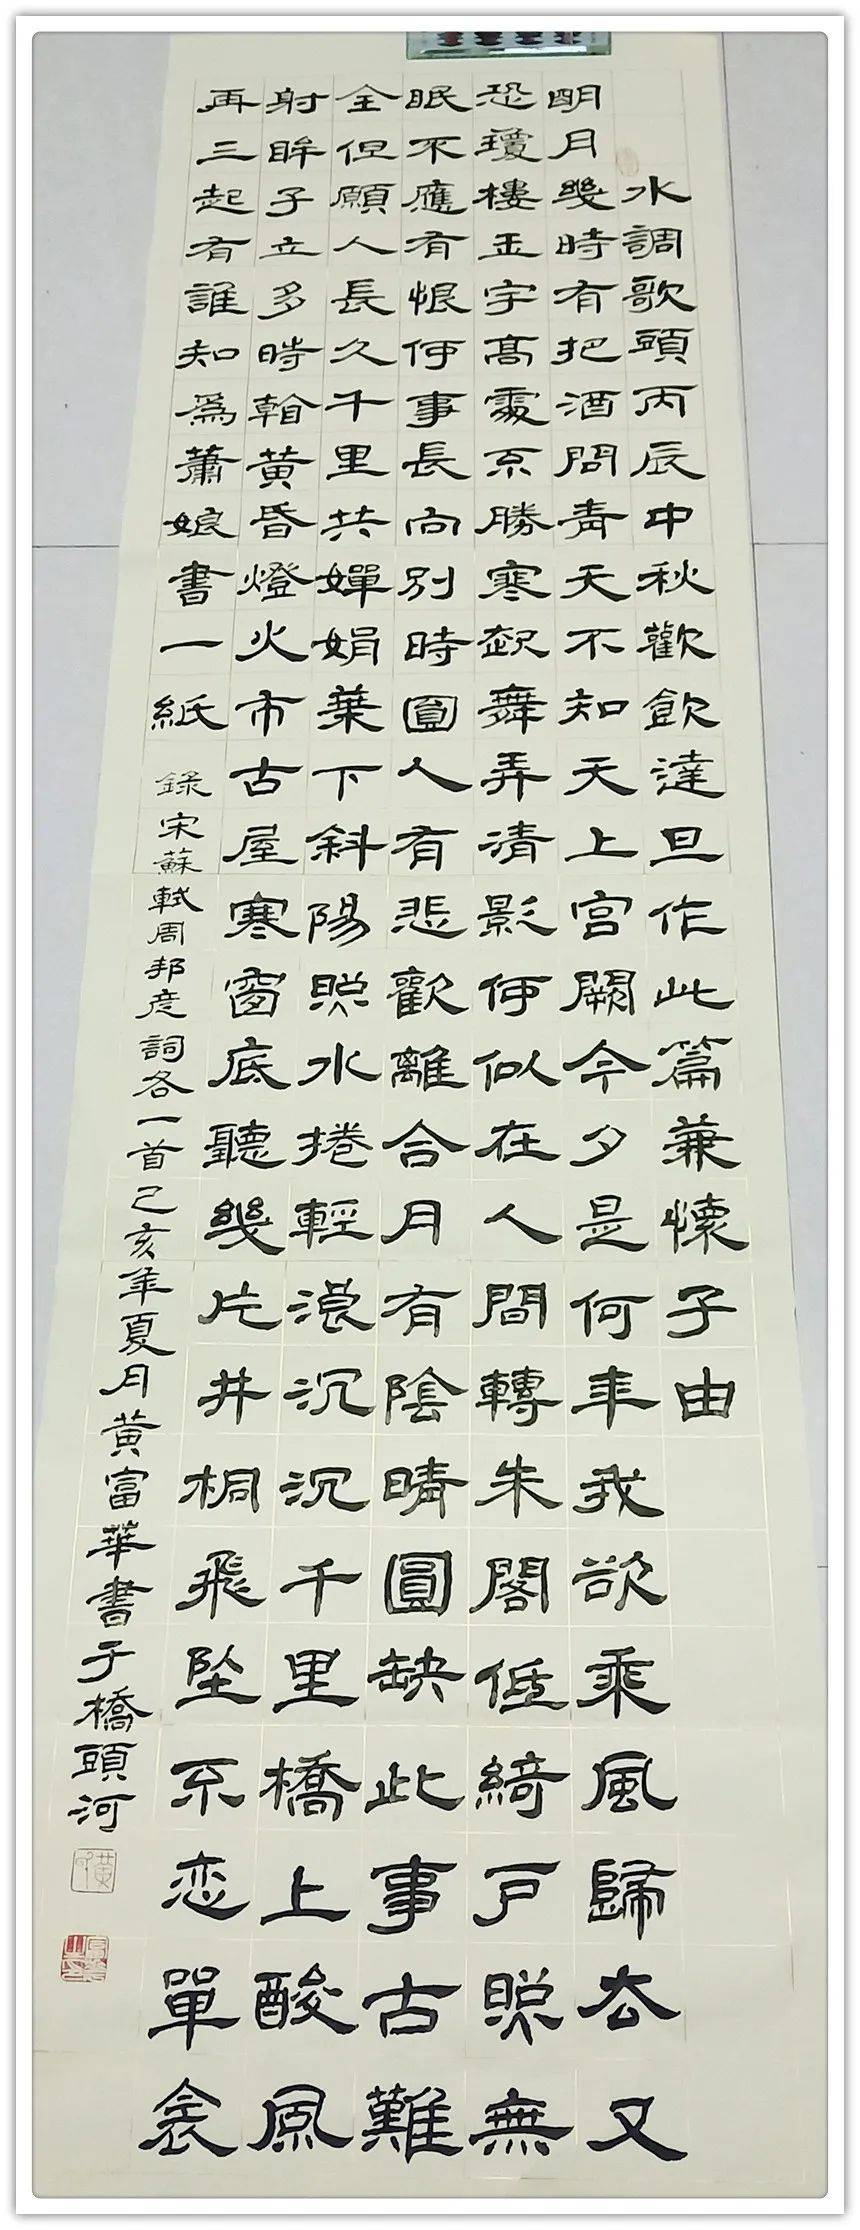 水調歌頭丙辰中秋歡飲達旦作此篇兼懷子由
明月幾時有把酒問青天不知天上宮闕今夕是何年我欲乘風歸去又
恐瓊樓玉宇高處不勝寒起舞弄清影何似在人間轉朱閣低綺戶照無
眠不應有恨何事長向別時圓人有悲歡離合月有陰晴圓缺此事古難
全但願人長久千里共嬋娟葉下斜陽照水捲輕浪沉沉千里橋上酸風
射眸子立多時看黃昏燈火市古屋寒窗底聽幾片井桐飛坠不恋單衾
再三起有誰知為蕭娘書一紙
錄宋蘇軾周邦彥詞各一首己亥年夏月黃富華書于橋頭河